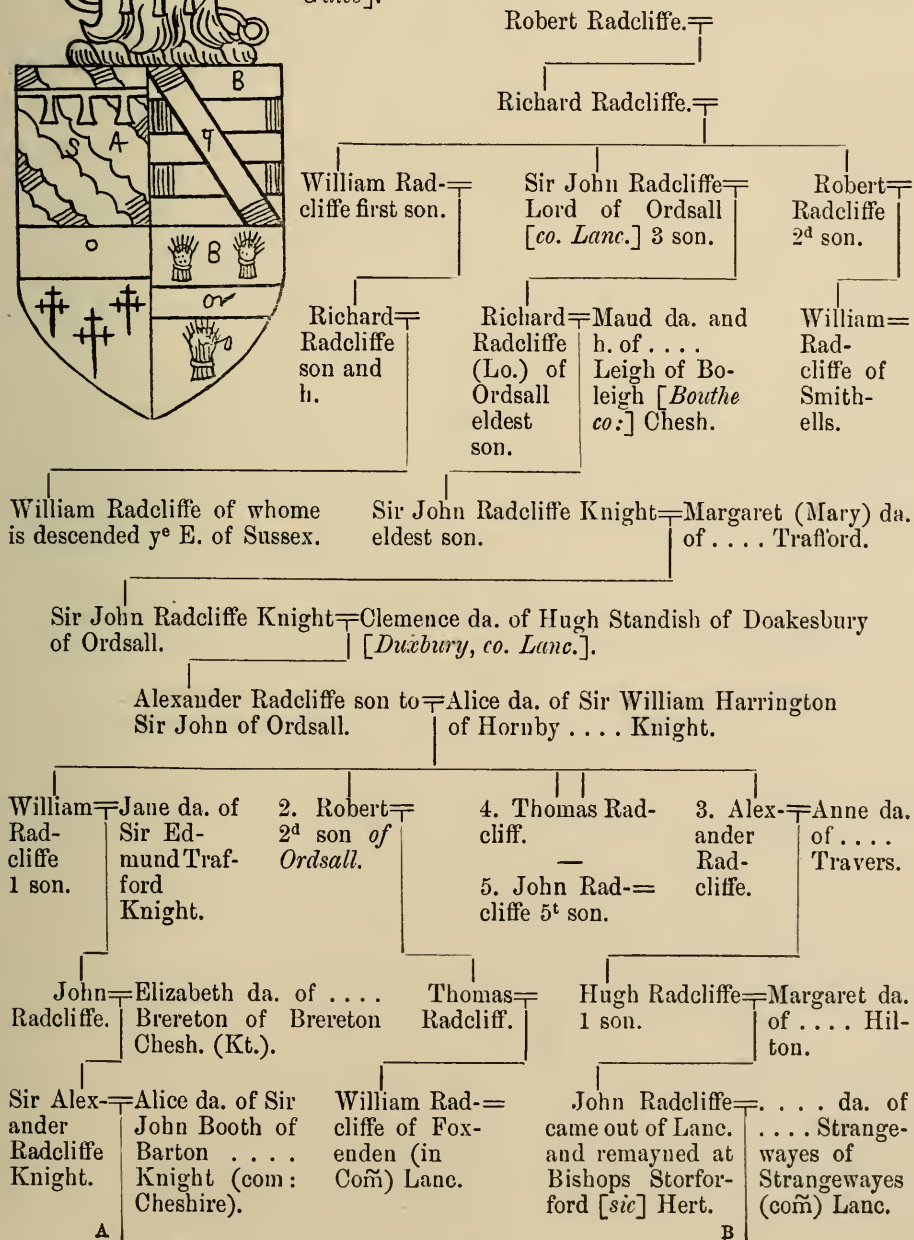 Robert Radcliffe.
Richard Radcliffe.
William Rad-
cliffe first son.
Sir John Radcliffe
Lord of Ordsall
[co. Lanc.] 3 son.
Robert
Radcliffe
2d son.
Richard
Radcliffe
son and
h.
Richard
Radcliffe
(Lo.) of
Ordsall
eldest
son.
Maud da. and
h. of . . . .
Leigh of Bo-
leigh [Bouthe
co:] Chesh.
William
Rad-
cliffe of
Smith-
ells.
William Radcliffe of whome
is descended ye E. of Sussex.
Sir John Radcliffe Knight
eldest son.
Margaret (Mary) da.
of . . . . Trafford.
Sir John Radcliffe Knight
of Ordsall.
Clemence da. of Hugh Standish of Doakesbury
[Duxbury, co. Lanc.].
Alexander Radcliffe son to
Sir John of Ordsall.
Alice da. of Sir William Harrington
of Hornby . . . . Knight.
William
Rad-
cliffe
1 son.
Jane da. of
Sir Ed-
mund Traf-
ford
Knight.
2. Robert
2d son of
Ordsall.
4. Thomas Rad-
cliff.
—
5. John Rad-
cliffe 5t son.
3. Alex-
ander
Rad-
cliffe.
Anne da.
of . . . .
Travers.
John
Radcliffe.
Elizabeth da. of . . . .
Brereton of Brereton
Chesh. (Kt.).
Thomas
Radcliff.
Hugh Radcliffe
1 son.
Margaret da.
of . . . . Hil-
ton.
Sir Alex-
ander
Radcliffe
Knight.
Alice da. of Sir
John Booth of
Barton . . . .
Knight (com:
Cheshire).
William Rad-
cliffe of Fox-
enden (in
Com̃) Lanc.
John Radcliffe
came out of Lanc.
and remayned at
Bishops Storfor-
ford [sic] Hert.
. . . . da. of
. . . . Strange-
wayes of
Strangewayes
(com̃) Lanc.
A
B
B
S
A
o
B
or